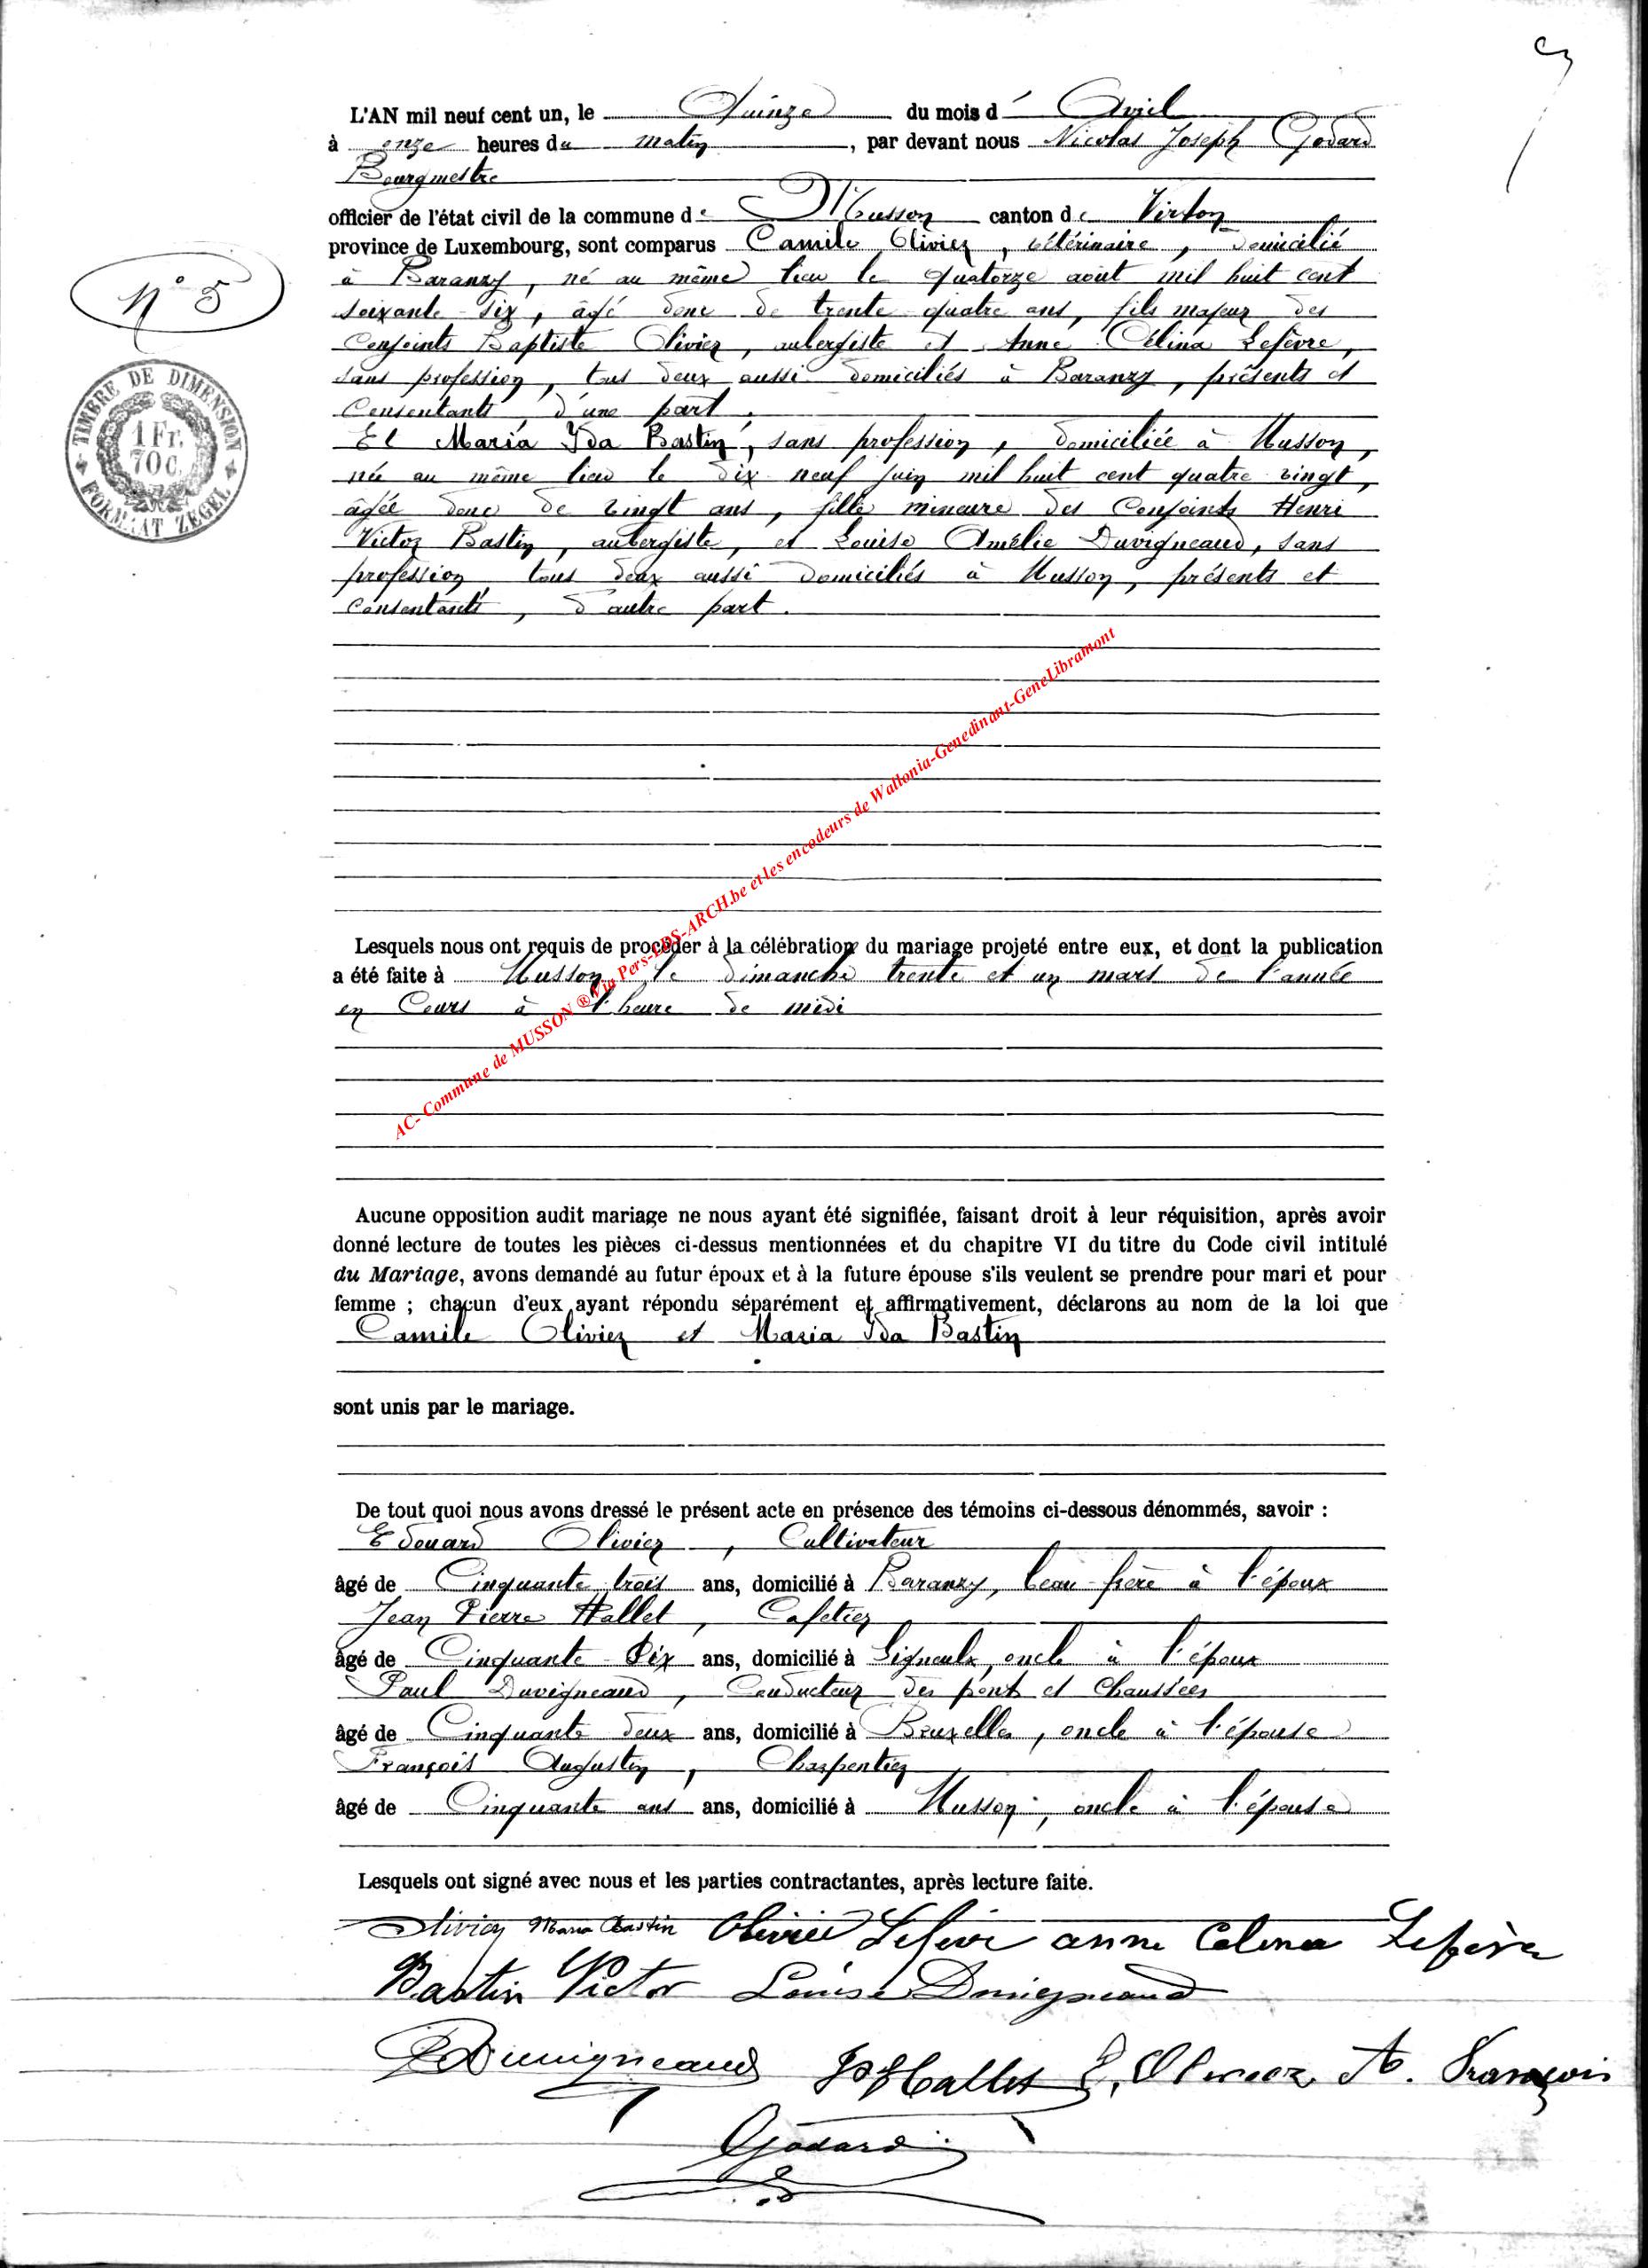 L'AN mil neuf cent un, le Quinze du mois d' Avril
à onze heures du matin, par devant nous Nicolas Joseph Godard
Bourgmestre
officier de l'état civil de la commune de Musson canton de Virton
province de Luxembourg, sont comparus Camile Olivier, vétérinaire, domicilié
à Baranzy, né au même lieu le quatorze août mil huit cent
soixante-six, âgé donc de trente quatre ans, fils majeur des
Conjoints Baptiste Olivier, aubergiste et Anne Célina Lefèvre,
sans profession, tous deux aussi domiciliés à Baranzy, présents et
Consentants, d'une part.
Et Maria Ida Bastin, sans profession, domiciliée à Musson,
née au même lieu le dix neuf juin mil huit cent quatre vingt,
âgée donc de vingt ans, fille mineure des Conjoints Henri
Victor Bastin, aubergiste, et Louise Amélie Duvigneaud, sans
profession, tous deux aussi domiciliés à Musson, présents et
consentants, d'autre part.
N° 5
TIMBRE DE DIMENSION
1 Fr.
70 C.
FORMAAT ZEGEL
AC- Commune de MUSSON ® Via Pers-EDS-ARCH.be et les encodeurs de Wallonia-Genedinant-GeneLibramont
Lesquels nous ont requis de procéder à la célébration du mariage projeté entre eux, et dont la publication
a été faite à Musson le dimanche trente et un mars de l'année
en Cours à l'heure de midi
Aucune opposition audit mariage ne nous ayant été signifiée, faisant droit à leur réquisition, après avoir
donné lecture de toutes les pièces ci-dessus mentionnées et du chapitre VI du titre du Code civil intitulé
du Mariage, avons demandé au futur époux et à la future épouse s'ils veulent se prendre pour mari et pour
femme ; chacun d'eux ayant répondu séparément et affirmativement, déclarons au nom de la loi que
Camile Olivier et Maria Ida Bastin
sont unis par le mariage.
De tout quoi nous avons dressé le présent acte en présence des témoins ci-dessous dénommés, savoir :
Edouard Olivier, Cultivateur
âgé de Cinquante trois ans, domicilié à Baranzy, beau-frère à l'époux
Jean Pierre Hallet, Cafetier
âgé de Cinquante-Six ans, domicilié à Signeulx, oncle à l'époux
Paul Duvigneaud, Conducteur des ponts et Chaussées
âgé de Cinquante deux ans, domicilié à Bruxelles, oncle à l'épouse
François Augustin, Charpentier
âgé de Cinquante ans ans, domicilié à Musson, oncle à l'épouse
Lesquels ont signé avec nous et les parties contractantes, après lecture faite.
Olivier Maria Bastin Olivier Lefèvre anne Celina Lefèvre
Bastin Victor Louise Duvigneaud
P Duvigneaud JP Hallet E. Olivier A. François
Godard